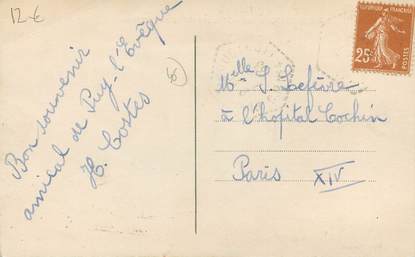 12 €
Bon souvenir
amical de Puy-l'Evêque
H. Costes
6
RÉPUBLIQUE FRANÇAISE
25c
POSTES
Melle S. Lefèvre
à l'hopital Cochin
Paris XIV